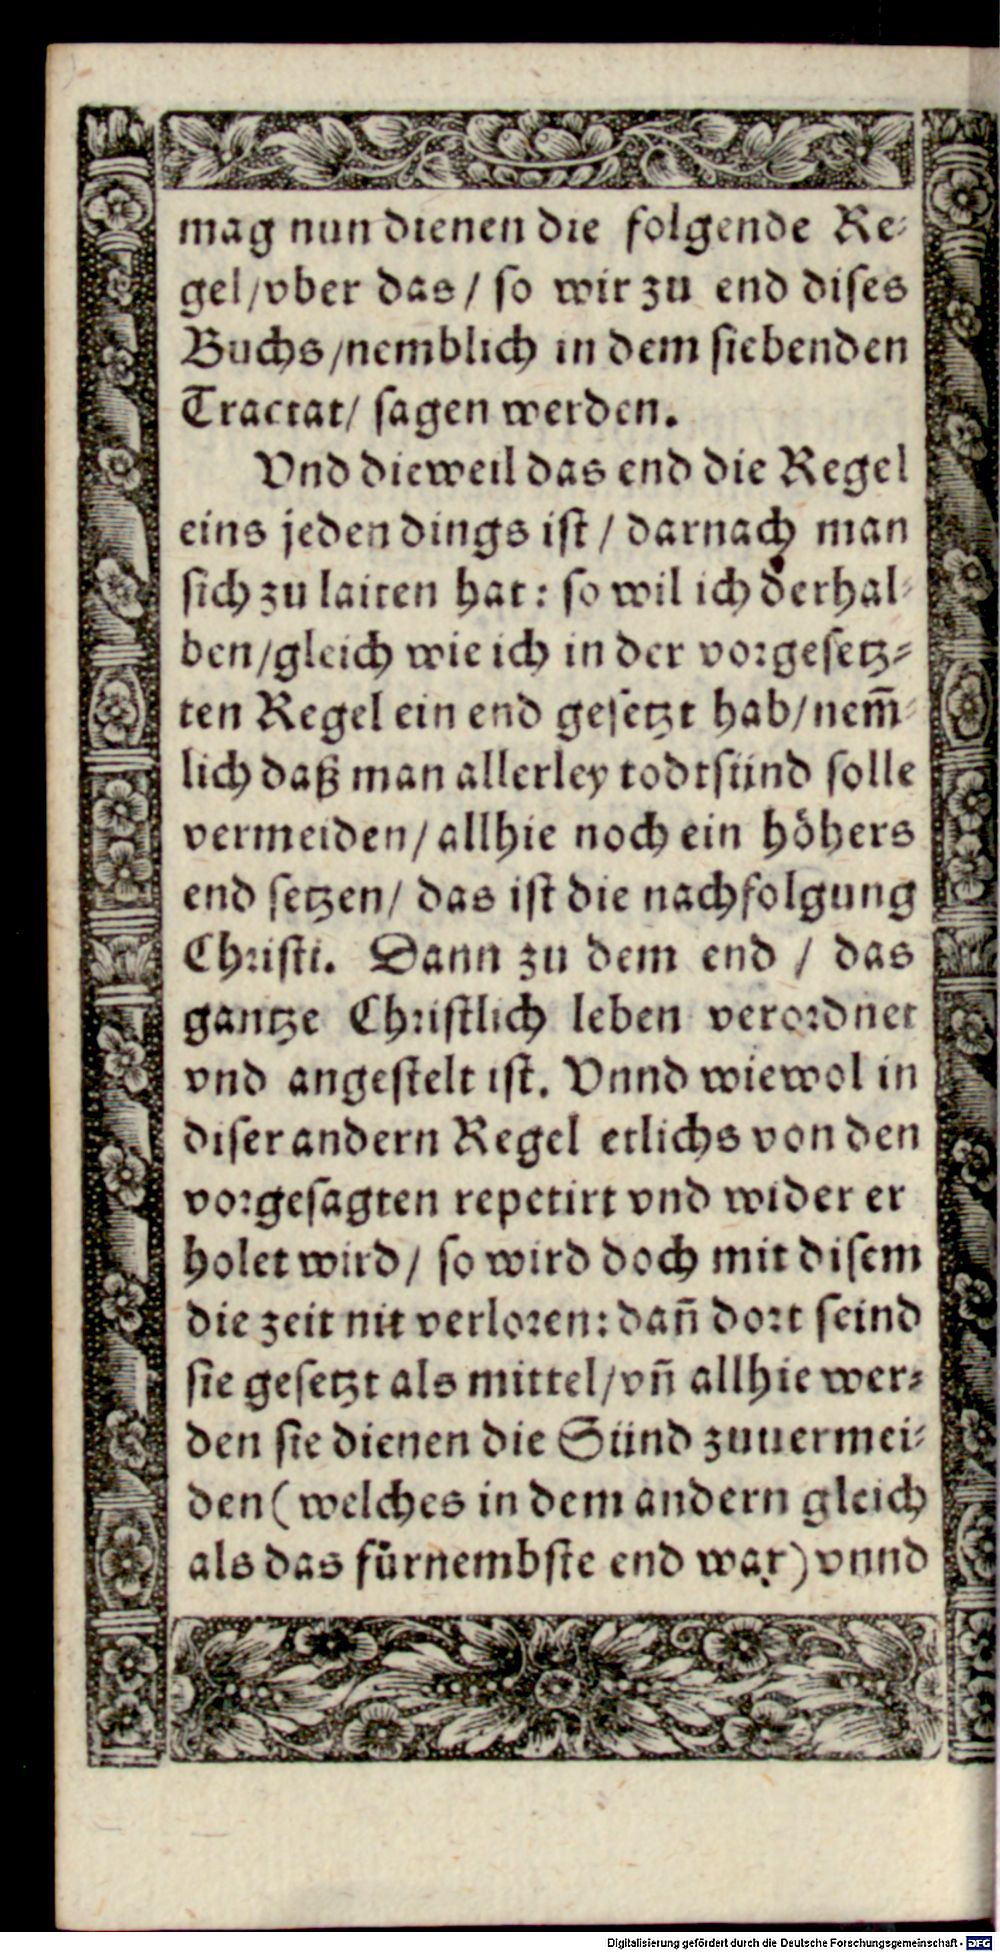 mag nun dienen die folgende Re-
gel/vber das/ so wir zu end dises
Buchs/nemblich in dem siebenden
Tractat/ sagen werden.
Vnd dieweil das end die Regel
eins jeden dings ist/ darnach man
sich zu laiten hat: so wil ich derhal-
ben/gleich wie ich in der vorgesetz-
ten Regel ein end gesetzt hab/nem̃-
lich daß man allerley todtsünd solle
vermeiden/ allhie noch ein höhers
end setzen/ das ist die nachfolgung
Christi. Dann zu dem end / das
gantze Christlich leben verordnet
vnd angestelt ist. Vnnd wiewol in
diser andern Regel etlichs von den
vorgesagten repetirt vnd wider er
holet wird/ so wird doch mit disem
die zeit nit verloren: dañ dort seind
sie gesetzt als mittel/vñ allhie wer-
den sie dienen die Sünd zuuermei-
den (welches in dem andern gleich
als das fürnembste end war) vnnd
Digitalisierung gefördert durch die Deutsche Forschungsgemeinschaft - DFG